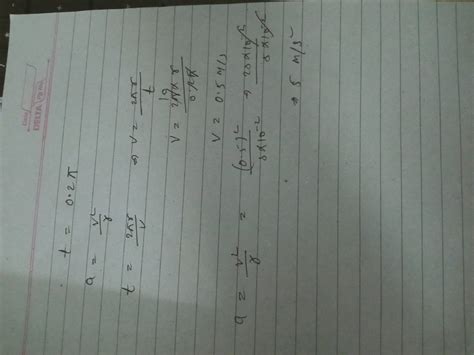 t = 0.2π
a = v²/r
t = 2πr/v ⇒ v = 2πr/t
v = 2π × r / 0.2π
v = 0.5 m/s
a = v²/r = (0.5)²/5×10⁻² ⇒ 25×10⁻²/5×10⁻²
⇒ 5 m/s²